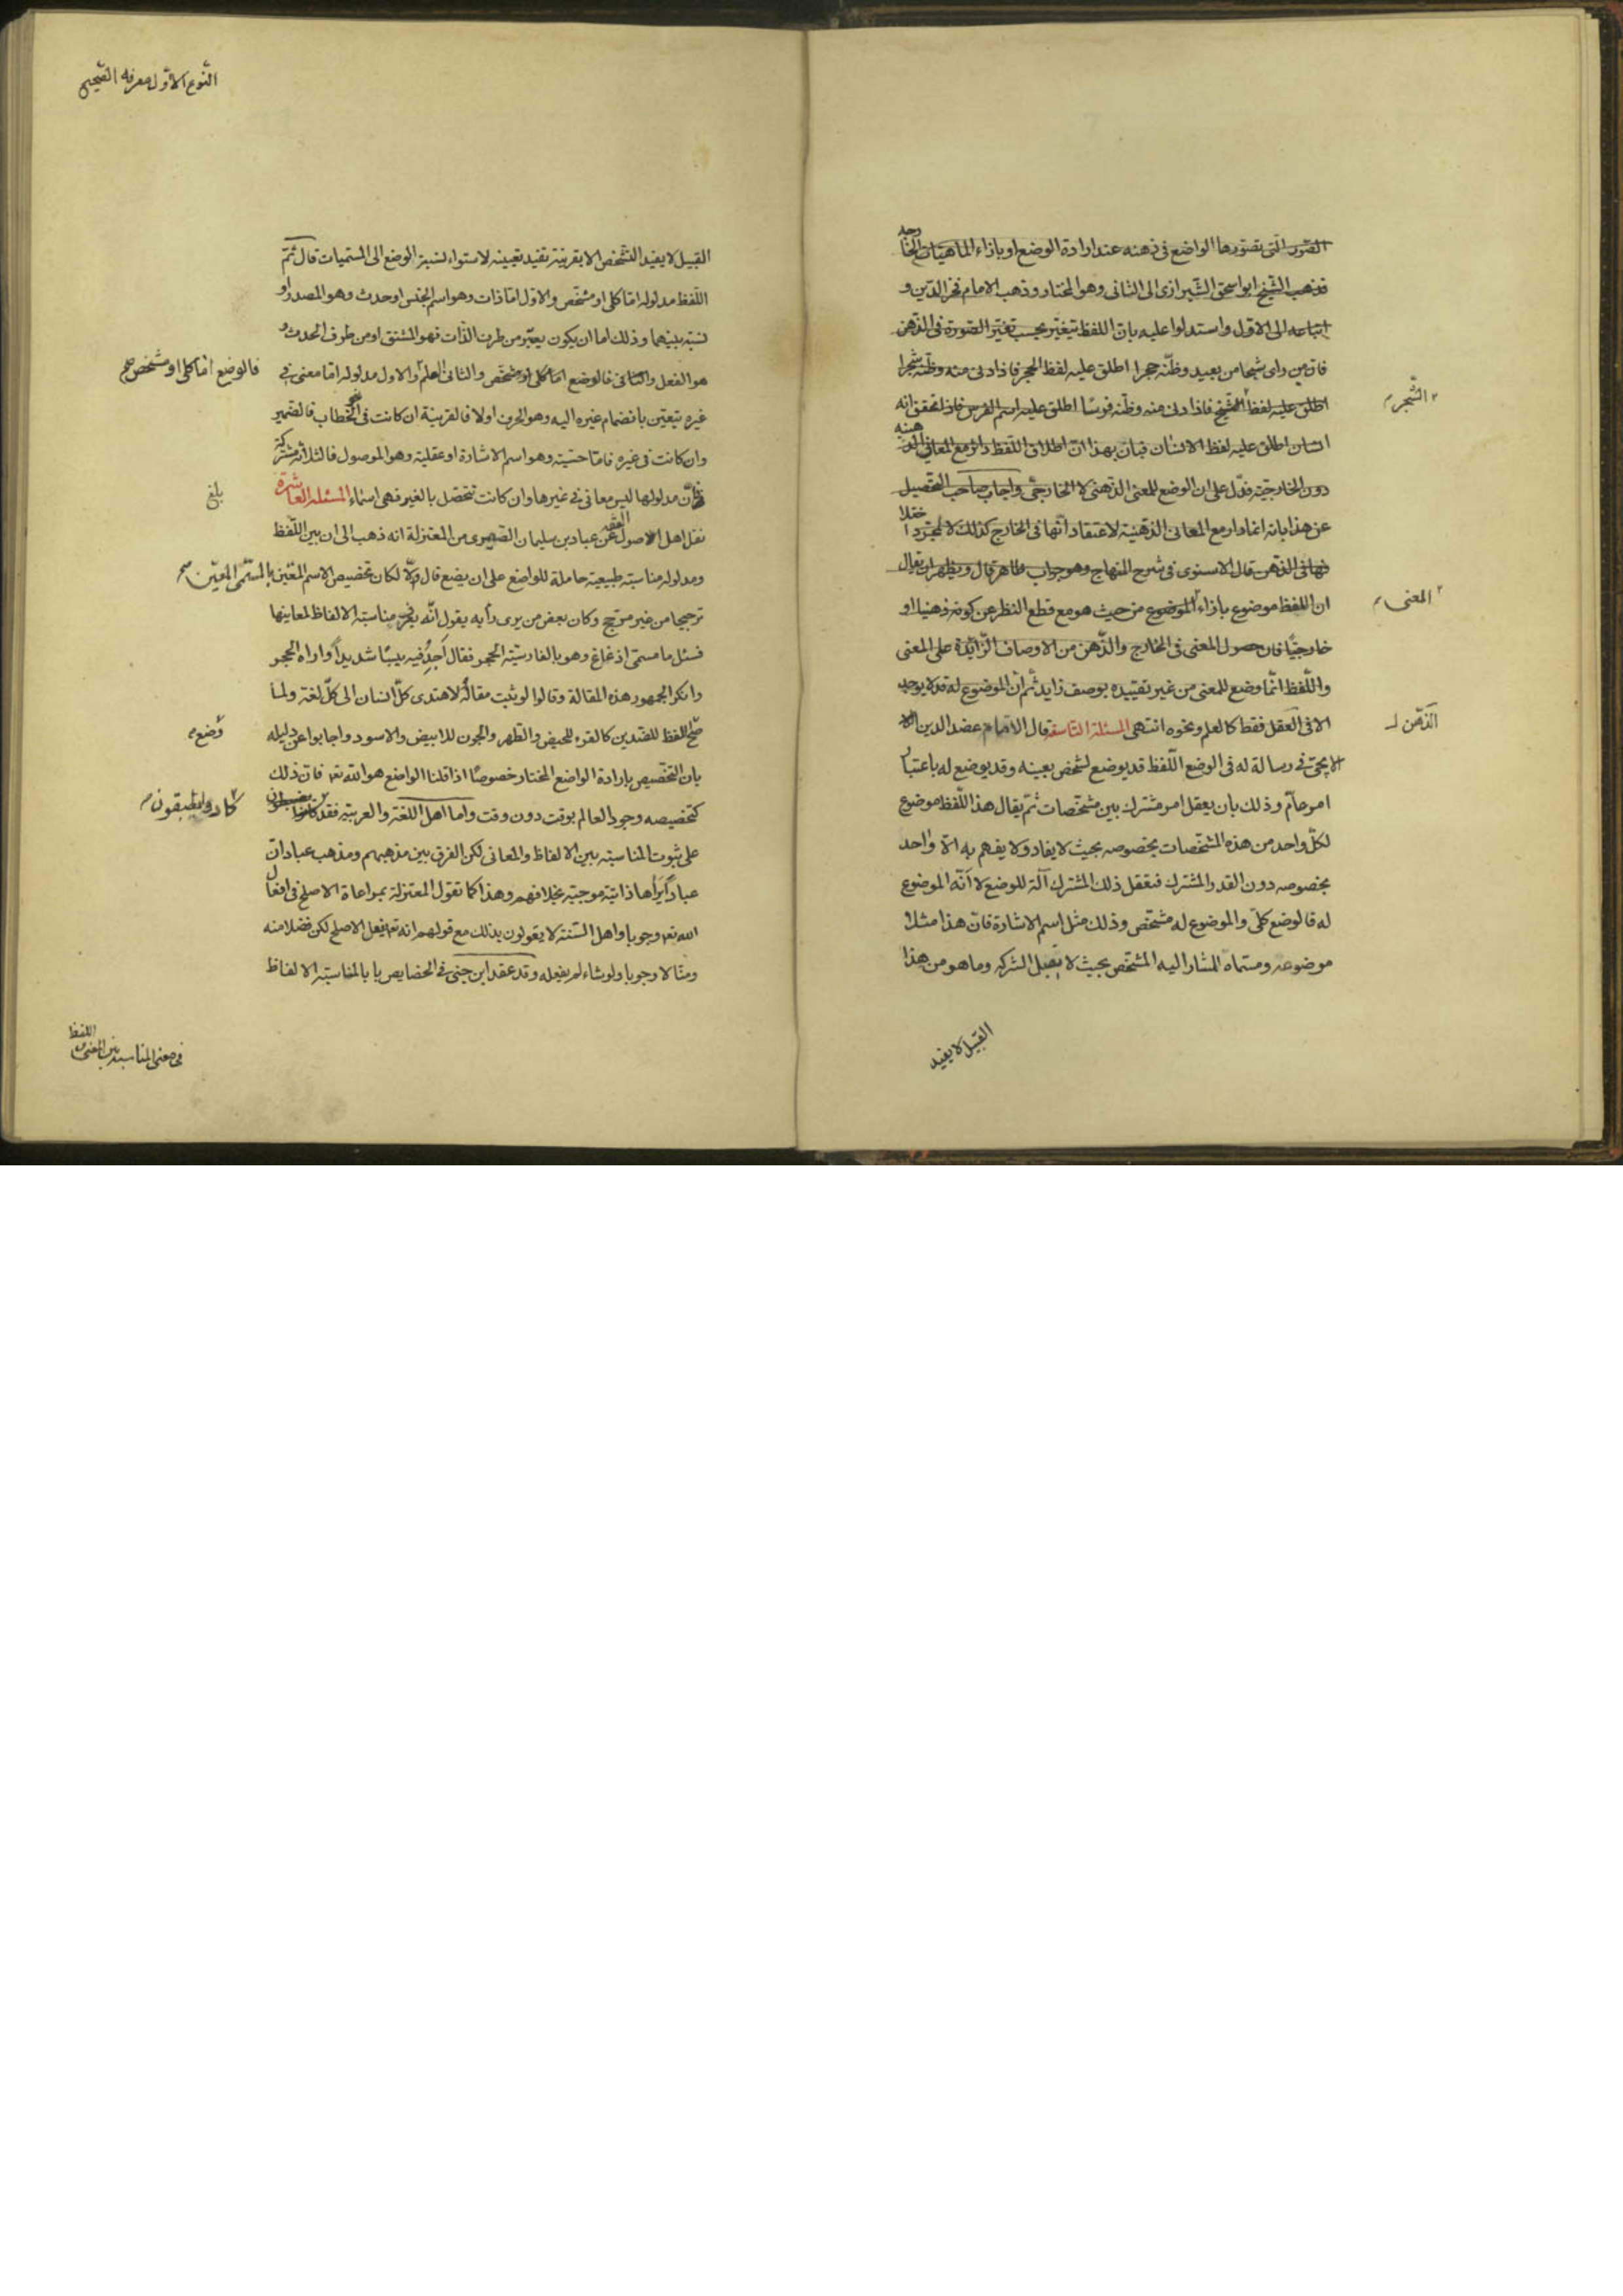 الصور التى تصورها الواضع فى ذهنه عند ارادة الوضع او بازاء الماهيات الخا
رجيه
فذهب الشيخ ابو اسحق الشيرازى الى الثانى وهو المختار وذهب الامام فخر الدين و
اتباعه الى الاول واستدلوا عليه بان اللفظ يتغير بحسب تغير الصورة فى الذهن
فان من راى شبحا من بعيد وظنه حجرا اطلق عليه لفظ الحجر فاذا دنى منه وظنه شجرا
اطلق عليه لفظ فاذا دنى منه وظنه فرسًا اطلق عليه اسم الفرس فاذا تحقق انه
الشجر
انسان اطلق عليه لفظ الانسان فبان بهذا ان اطلاق اللفظ دائر مع المعانى الذ
هنيه
دون الخارجيّة فدلّ على ان الوضع للمعنى الذهنى لا الخارجىّ واجاب صاحب التحصيل
عن هذا بانه انما دار مع المعانى الذهنيّة لاعتقاد انها فى الخارج كذلك لا لمجرد ا
ختلا
فها فى الذهن قال الاسنوى فى شرح المنهاج وهو جواب ظاهر قال ويظهر ان يقال
ان اللفظ موضوع بازاء الموضوع من حيث هو مع قطع النظر عن كونه ذهنيا او
المعنى
خارجيًا فان حصول المعنى فى الخارج والذهن من الاوصاف الزائدة على المعنى
واللّفظ انّما وضع للمعنى من غير تقييده بوصف زايد ثم ان الموضوع له قد لا يوجد
الا فى العقل فقط كالعلم ونحوه انتهى المسئلة التاسعة قال الامام عضد الدين الا
الذهن
الايجى فى رسالة له فى الوضع اللّفظ قد يوضع لشخص بعينه وقد يوضع له باعتبار
امر عامّ وذلك بان يعقل امر مشترك بين مشخّصات ثمّ يقال هذا اللّفظ موضوع
لكلّ واحد من هذه المشخصات بخصوصه بحيث لا يفاد ولا يفهم به الّا واحد
بخصوصه دون القدر المشترك فتعقل ذلك المشترك آلة للوضع لا انّه الموضوع
له فالوضع كلّى والموضوع له مشخّص وذلك مثل اسم الاشارة فانّ هذا مثلا
موضوعه ومسمّاه المشار اليه المشخّص بحيث لا يقبل الشركه وما هو من هذا
القبيل لا يفيد
النّوع الاوّل معرفه الصّحيح
القبيل لا يفيد التّشخّص الا بقرينة تفيد تعيينه لاستواء نسبة الوضع الى المسمّيات قال ثمّ
اللّفظ مدلوله امّا كلى او مشخّص والاوّل امّا ذات وهو اسم الجنس او حدث وهو المصدر او
نسبة بينهما وذلك اما ان يكون يعتبر من طرف الذّات فهو المشتق او من طرف الحدث و
هو الفعل والثانى فالوضع اما كلى او مشخّص والثانى العلم والاول مدلوله امّا معنى فى
فالوضع امّا كلى او مشخص صح
غيره يتعيّن بانضمام غيره اليه وهو الحرف اولا فالقرينة ان كانت فى الخطاب فالضمير
وان كانت فى غيره فامّا حسّيّة وهو اسم الاشارة او عقلية وهو الموصول فالثلاثة مشتركة
فانّ مدلولها ليس معانى فى غيرها وان كانت تتحصّل بالغير فهى اسماء المسئله العاشره
بلغ
نقل اهل الاصول الفقه عن عباد بن سليمان الصّيمرى من المعتزلة انه ذهب الى ان بين اللّفظ
ومدلوله مناسبة طبيعية حاملة للواضع على ان يضع قال والّا لكان تخصيص الاسم المعّين بالمسمّى المعيّن صح
ترجيحا من غير مرجّح وكان بعض من يرى رأيه يقول انّه يعرف مناسبة الالفاظ لمعانيها
فسئل ما مسمّى اذغاغ وهو بالفارسيّة الحجر فقال اجد فيه يبسًا شديدًا واراه الحجر
وانكر الجمهور هذه المقالة وقالوا لو ثبت مقاله لاهتدى كلّ انسان الى كلّ لغة ولما
صحّ اللفظ للضّدين كالقرء للحيض والطّهر والجون للابيض والاسود واجابوا عن دليله
وضع
بان التخصيص بارادة الواضع المختار خصوصًا اذا قلنا الواضع هو الله تعـ فان ذلك
كتخصيصه وجود العالم بوقت دون وقت واما اهل اللغة والعربيّة فقد
كادوا يطبقون
على ثبوت المناسبة بين الالفاظ والمعانى لكن الفرق بين مذهبهم ومذهب عباد انّ
عبادًا يراها ذاتيّة موجبة بخلافهم وهذا كما تقول المعتزلة بمراعاة الاصلح فى افعال
الله تعـ وجوبا واهل السّنة لا يقولون بذلك مع قولهم انه تعـ يفعل الاصلح لكن فضلا منه
ومنّا لا وجوبا ولو شاء لم يفعله وقد عقد ابن جنى فى الخصايص بابا لمناسبة الالفاظ
فى معنى المناسبة بين المعنى و اللفظ